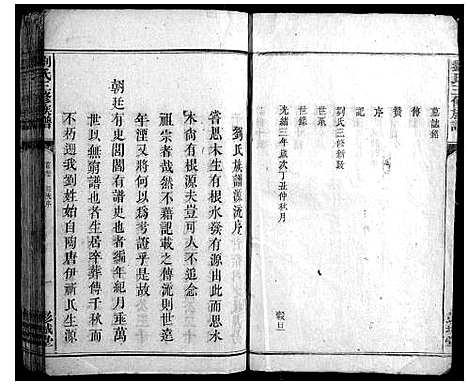 墓誌銘
傳
贊
序
記
劉氏三修新跋
世系
世錄
光緒三年歲次丁丑仲秋月
穀旦
劉氏族譜源流序
嘗思木生有根水發有源由此而思水
木尚有根源人可不追念
祖宗者哉然不藉記載之傳流則世遠
年湮又將何以為考證乎是故
朝廷有史閭閻有譜史也者編年紀月垂萬
世以無窮譜也者生居卒葬傳千秋而
不朽遡我劉姓始自陶唐伊祈氏生源
劉氏三修族譜
彭城堂